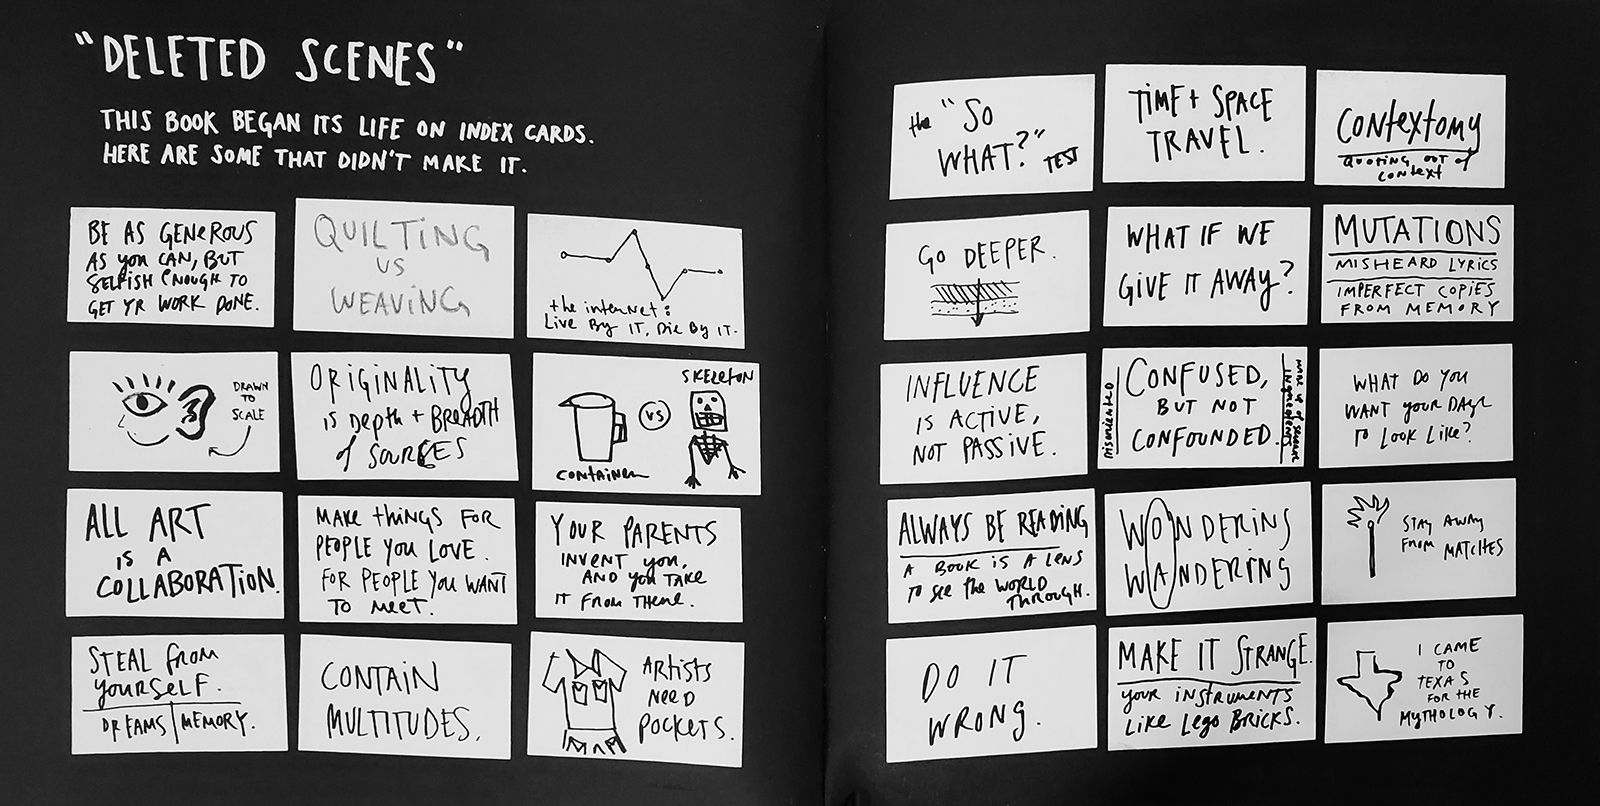 "DELETED SCENES"
THIS BOOK BEGAN ITS LIFE ON INDEX CARDS.
HERE ARE SOME THAT DIDN'T MAKE IT.
BE AS GENEROUS
AS YOU CAN, BUT
SELFISH ENOUGH TO
GET YR WORK DONE.
QUILTING
VS
WEAVING
the internet:
Live By IT, Die By IT.
DRAWN
TO
SCALE
ORIGINALITY
is Depth + BREADTH
of SOURCES
CONTAINER
VS
SKELETON
ALL ART
IS A
COLLABORATION.
MAKE things FOR
PEOPLE YOU LOVE.
FOR PEOPLE YOU WANT
TO MEET.
YOUR PARENTS
INVENT YOU,
AND YOU TAKE
IT FROM THERE.
STEAL FROM
YOURSELF.
DREAMS | MEMORY.
CONTAIN
MULTITUDES.
ARTISTS
NEED
POCKETS.
the "SO
WHAT?" TEST
TIME + SPACE
TRAVEL.
CONTEXTOMY
QUOTING OUT OF
CONTEXT
GO DEEPER.
WHAT IF WE
GIVE IT AWAY?
MUTATIONS
MISHEARD LYRICS
IMPERFECT COPIES
FROM MEMORY
INFLUENCE
IS ACTIVE,
NOT PASSIVE.
misoriented
CONFUSED,
BUT NOT
CONFOUNDED.
INGREDIENTS
WHAT DO YOU
WANT YOUR DAYS
TO LOOK LIKE?
ALWAYS BE READING
A BOOK IS A LENS
TO SEE THE WORLD
THROUGH.
WONDERING
WANDERING
STAY AWAY
FROM MATCHES
DO IT
WRONG.
MAKE IT STRANGE.
YOUR INSTRUMENTS
LIKE LEGO BRICKS.
I CAME
TO
TEXAS
FOR THE
MYTHOLOGY.